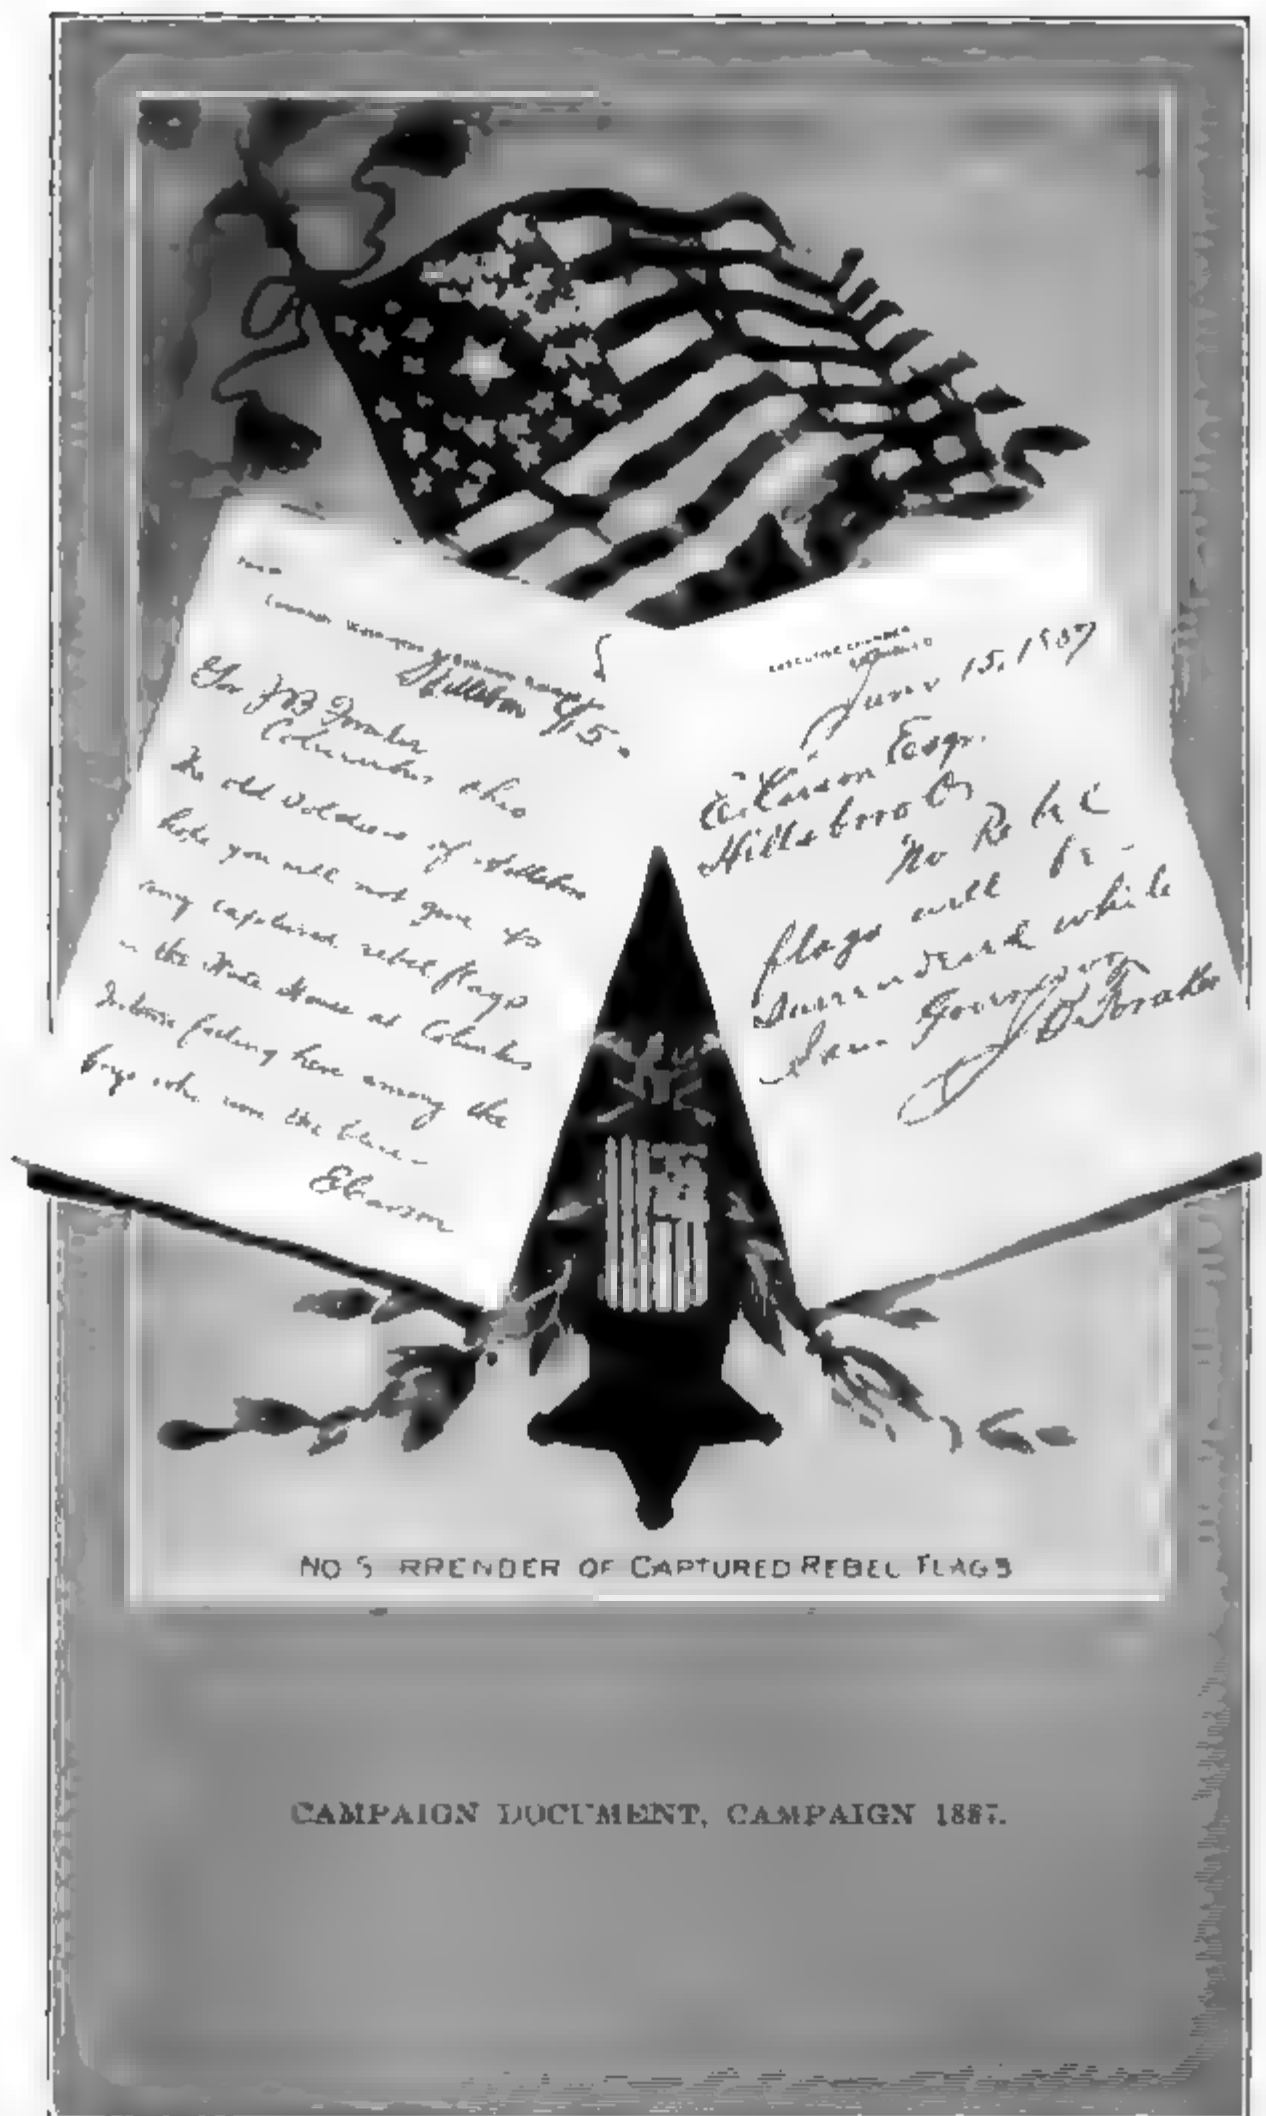 Hillsboro 6/15.
Gov J B Foraker
Columbus Ohio
The old Soldiers of Hillsboro
hope you will not give up
any captured rebel flags
in the State House at Columbus
Intense feeling here among the
boys who won the blue.
E Carson
EXECUTIVE CHAMBER
June 15, 1887
E. Carson Esqr.
Hillsboro O.
No Rebel
flags will be
surrendered while
I am Governor
J B Foraker
NO S RRENDER OF CAPTURED REBEL FLAGS
CAMPAIGN DOCUMENT, CAMPAIGN 1887.